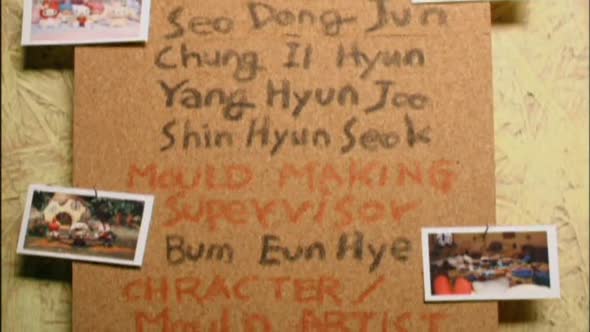 Seo Dong Jun
Chung Il Hyun
Yang Hyun Joo
Shin Hyun Seok
MOULD MAKING
Supervisor
Bum Eun Hye
CHRACTER/
Mould ARTIST